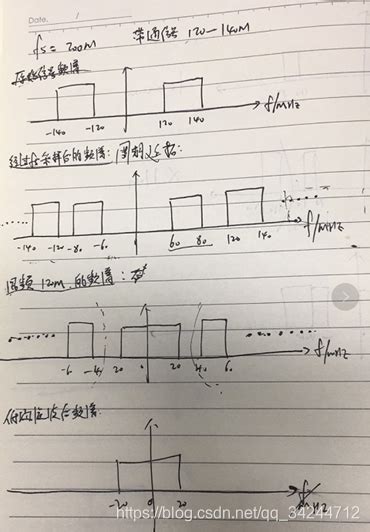 Date. /
fs = 200M 带通信号 120—140M
原始信号频谱
f/MHz
-140 -120 120 140
经过采样后的频谱：周期延拓：
f/MHz
-140 -120 -80 -60 60 80 120 140
混频 120M 的频谱：
f/MHz
-6 -4 20 0 20 40 60
低通滤波后频谱
f/MHz
-20 0 20
https://blog.csdn.net/qq_34244712